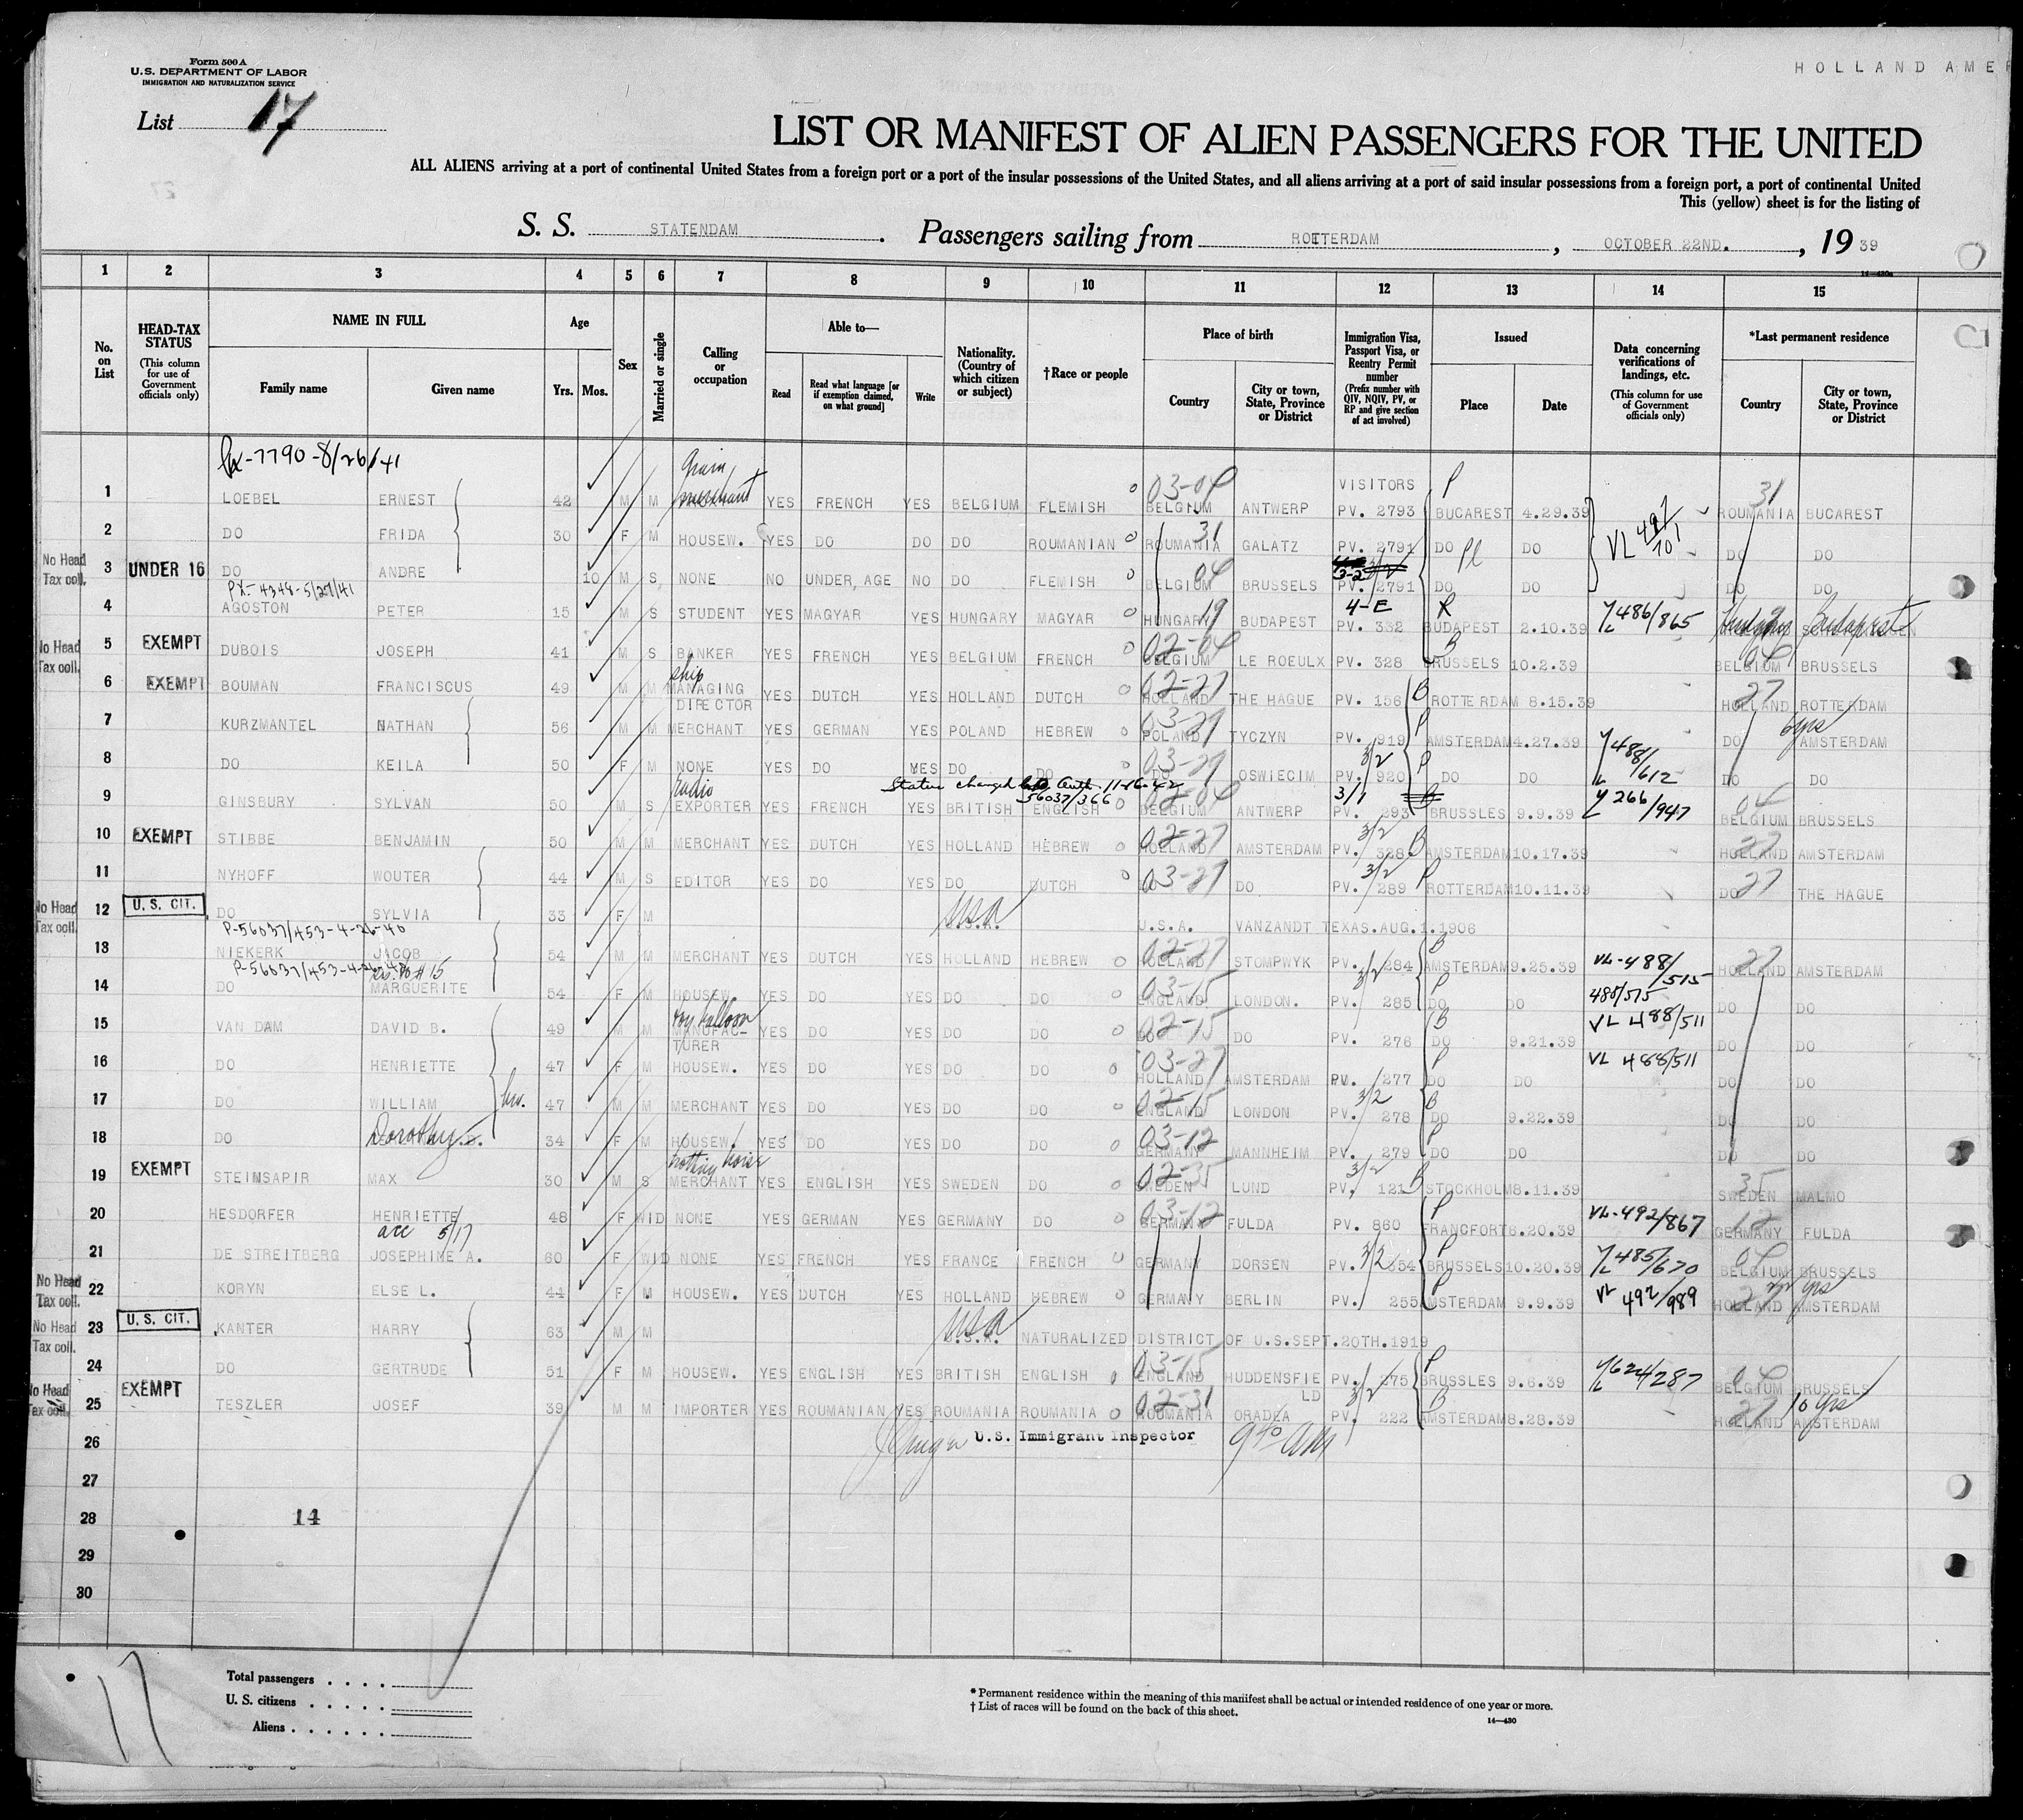 Form 500 A
U.S. DEPARTMENT OF LABOR
IMMIGRATION AND NATURALIZATION SERVICE
HOLLAND AMER
List 17
LIST OR MANIFEST OF ALIEN PASSENGERS FOR THE UNITED
ALL ALIENS arriving at a port of continental United States from a foreign port or a port of the insular possessions of the United States, and all aliens arriving at a port of said insular possessions from a foreign port, a port of continental United
This (yellow) sheet is for the listing of
S. S. STATENDAM . Passengers sailing from ROTTERDAM , OCTOBER 22ND. , 19 39
14—430a
1 2 3 4 5 6 7 8 9 10 11 12 13 14 15
No. on List
HEAD-TAX STATUS (This column for use of Government officials only)
NAME IN FULL
Family name Given name
Age
Yrs. Mos.
Sex
Married or single
Calling or occupation
Able to—
Read Read what language [or if exemption claimed, on what ground] Write
Nationality. (Country of which citizen or subject)
†Race or people
Place of birth
Country City or town, State, Province or District
Immigration Visa, Passport Visa, or Reentry Permit number (Prefix number with QIV, NQIV, PV, or RP and give section of act involved)
Issued
Place Date
Data concerning verifications of landings, etc. (This column for use of Government officials only)
*Last permanent residence
Country City or town, State, Province or District
7790-8/26/41 Grain
1 LOEBEL ERNEST 42 M M merchant YES FRENCH YES BELGIUM FLEMISH 03-04 BELGIUM ANTWERP VISITORS PV. 2793 P BUCAREST 4.29.39 31 ROUMANIA BUCAREST
2 DO FRIDA 30 F M HOUSEW. YES DO DO DO ROUMANIAN 31 ROUMANIA GALATZ PV. 2791 DO DO VL 497/101 DO DO
No Head Tax coll. 3 UNDER 16 DO ANDRE 10 M S NONE NO UNDER, AGE NO DO FLEMISH 04 BELGIUM BRUSSELS 3-2 PV. 2791 DO DO DO DO
PX-4348-5/27/41
4 AGOSTON PETER 15 M S STUDENT YES MAGYAR YES HUNGARY MAGYAR 19 HUNGARY BUDAPEST 4-E PV. 332 BUDAPEST 2.10.39 VL 486/865 Hungary Budapest
No Head Tax coll. 5 EXEMPT DUBOIS JOSEPH 41 M S BANKER YES FRENCH YES BELGIUM FRENCH 02-04 BELGIUM LE ROEULX PV. 328 B BRUSSELS 10.2.39 04 BELGIUM BRUSSELS
6 EXEMPT BOUMAN FRANCISCUS 49 M M ship MANAGING DIRECTOR YES DUTCH YES HOLLAND DUTCH 02-27 HOLLAND THE HAGUE PV. 156 B ROTTERDAM 8.15.39 27 HOLLAND ROTTERDAM
7 KURZMANTEL NATHAN 56 M M MERCHANT YES GERMAN YES POLAND HEBREW 03-29 POLAND TYCZYN PV. 919 P AMSTERDAM 4.27.39 DO 6 yrs AMSTERDAM
8 DO KEILA 50 F M NONE YES DO YES DO DO 03-29 DO OSWIECIM 3/2 PV. 920 P DO DO VL 488/612 DO DO
Status changed to Auth. 11-16-42 56037/366
9 GINSBURY SYLVAN 50 M S radio EXPORTER YES FRENCH YES BRITISH ENGLISH 02-04 BELGIUM ANTWERP 3/1 PV. 293 BRUSSLES 9.9.39 VL 266/947 04 BELGIUM BRUSSELS
10 EXEMPT STIBBE BENJAMIN 50 M M MERCHANT YES DUTCH YES HOLLAND HEBREW 02-27 HOLLAND AMSTERDAM 3/2 PV. 328 B AMSTERDAM 10.17.39 27 HOLLAND AMSTERDAM
11 NYHOFF WOUTER 44 M S EDITOR YES DO YES DO DUTCH 03-27 DO DO 3/2 PV. 289 P ROTTERDAM 10.11.39 27 DO THE HAGUE
No Head Tax coll. 12 U.S. CIT. DO SYLVIA 33 F M USA U.S.A. U.S.A. VANZANDT TEXAS.AUG.1.1906
P-56037/453-4-26-40
13 NIEKERK JACOB 54 M M MERCHANT YES DUTCH YES HOLLAND HEBREW 02-27 HOLLAND STOMPWYK PV. 284 B AMSTERDAM 9.25.39 VL-488/515 27 HOLLAND AMSTERDAM
P-56037/453-4-26-40 sis. to #15
14 DO MARGUERITE 54 F M HOUSEW. YES DO YES DO DO 03-15 ENGLAND LONDON. 3/2 PV. 285 P DO DO 488/515 DO DO
15 VAN DAM DAVID B. 49 M M toy balloon MANUFACTURER YES DO YES DO DO 02-15 DO DO PV. 276 B DO 9.21.39 VL 488/511 DO DO
16 DO HENRIETTE 47 F M HOUSEW. YES DO YES DO DO 03-27 HOLLAND AMSTERDAM PV. 277 P DO DO VL 488/511 DO DO
17 DO WILLIAM bro. 47 M M MERCHANT YES DO YES DO DO 02-15 ENGLAND LONDON 3/2 PV. 278 B DO 9.22.39 DO DO
18 DO Dorothy 34 F M HOUSEW. YES DO YES DO DO 03-12 GERMANY MANNHEIM PV. 279 P DO DO DO DO
19 EXEMPT STEINSAPIR MAX 30 M S MERCHANT YES ENGLISH YES SWEDEN DO 02-35 SWEDEN LUND 3/2 PV. 121 B STOCKHOLM 8.11.39 35 SWEDEN MALMO
20 HESDORFER HENRIETTE 48 F WID NONE YES GERMAN YES GERMANY DO 03-12 GERMANY FULDA PV. 860 P FRANCFORT 6.20.39 VL-492/867 12 GERMANY FULDA
acc 5/17
21 DE STREITBERG JOSEPHINE A. 60 F WID NONE YES FRENCH YES FRANCE FRENCH GERMANY DORSEN 3/2 PV. 354 P BRUSSELS 10.20.39 VL 485/670 04 BELGIUM BRUSSELS
No Head Tax coll. 22 KORYN ELSE L. 44 F M HOUSEW. YES DUTCH YES HOLLAND HEBREW GERMANY BERLIN PV. 255 P AMSTERDAM 9.9.39 VL 492/989 27 HOLLAND 22 yrs AMSTERDAM
No Head Tax coll. 23 U.S. CIT. KANTER HARRY 63 M M USA U.S.A. NATURALIZED DISTRICT OF U.S.SEPT.20TH.1919
24 DO GERTRUDE 51 F M HOUSEW. YES ENGLISH YES BRITISH ENGLISH 03-15 ENGLAND HUDDENSFIELD PV. 275 P BRUSSLES 9.6.39 VL 624/287 04 BELGIUM BRUSSELS
No Head Tax coll. 25 EXEMPT TESZLER JOSEF 39 M M IMPORTER YES ROUMANIAN YES ROUMANIA ROUMANIA 02-31 ROUMANIA ORADEA 3/2 PV. 222 B AMSTERDAM 8.28.39 27 HOLLAND 10 yrs AMSTERDAM
26 U.S. Immigrant Inspector 9 40 AM
27
28 14
29
30
17
Total passengers . . . .
U. S. citizens . . . . .
Aliens . . . . . .
*Permanent residence within the meaning of this manifest shall be actual or intended residence of one year or more.
†List of races will be found on the back of this sheet.
14—430